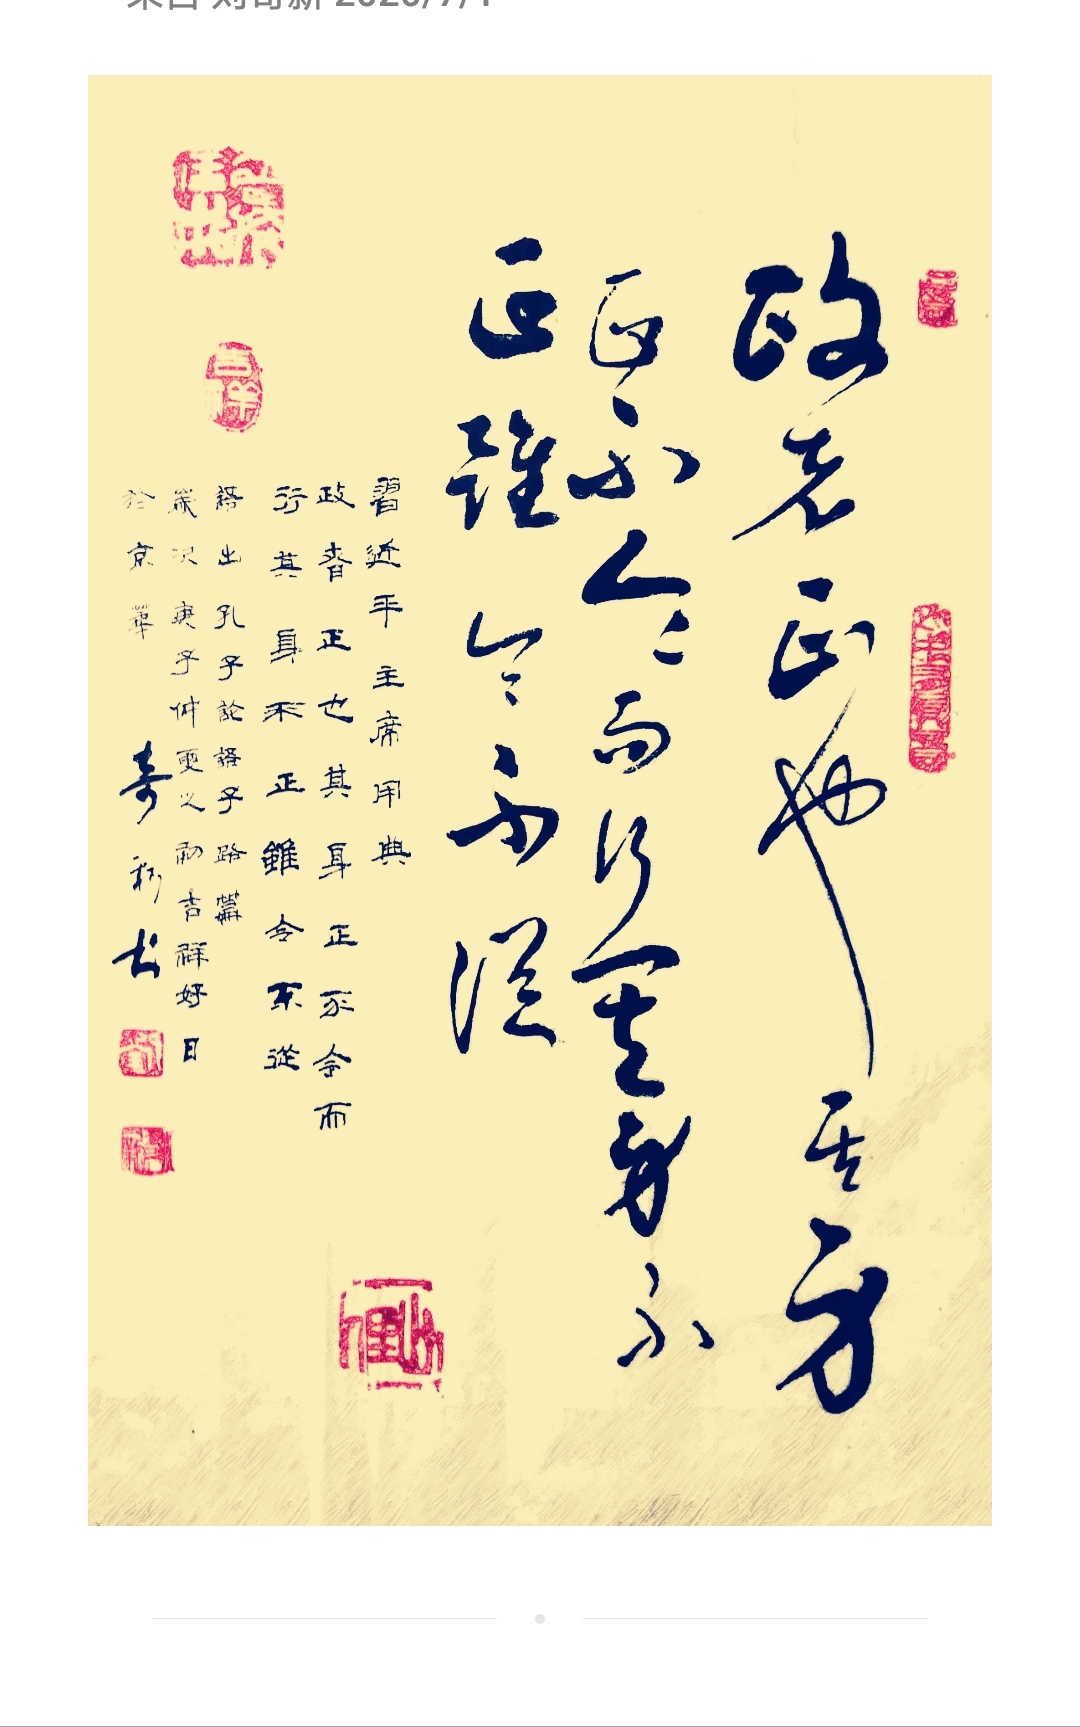 来自 刘奇新 2020/7/1
政者正也其身
正不令而行其身不
正雖令不從
習近平主席用典
政者正也其身正不令而
行其身不正雖令不從
語出孔子論語子路篇
歲次庚子仲夏之初吉祥好日
於京華奇新书
吉祥